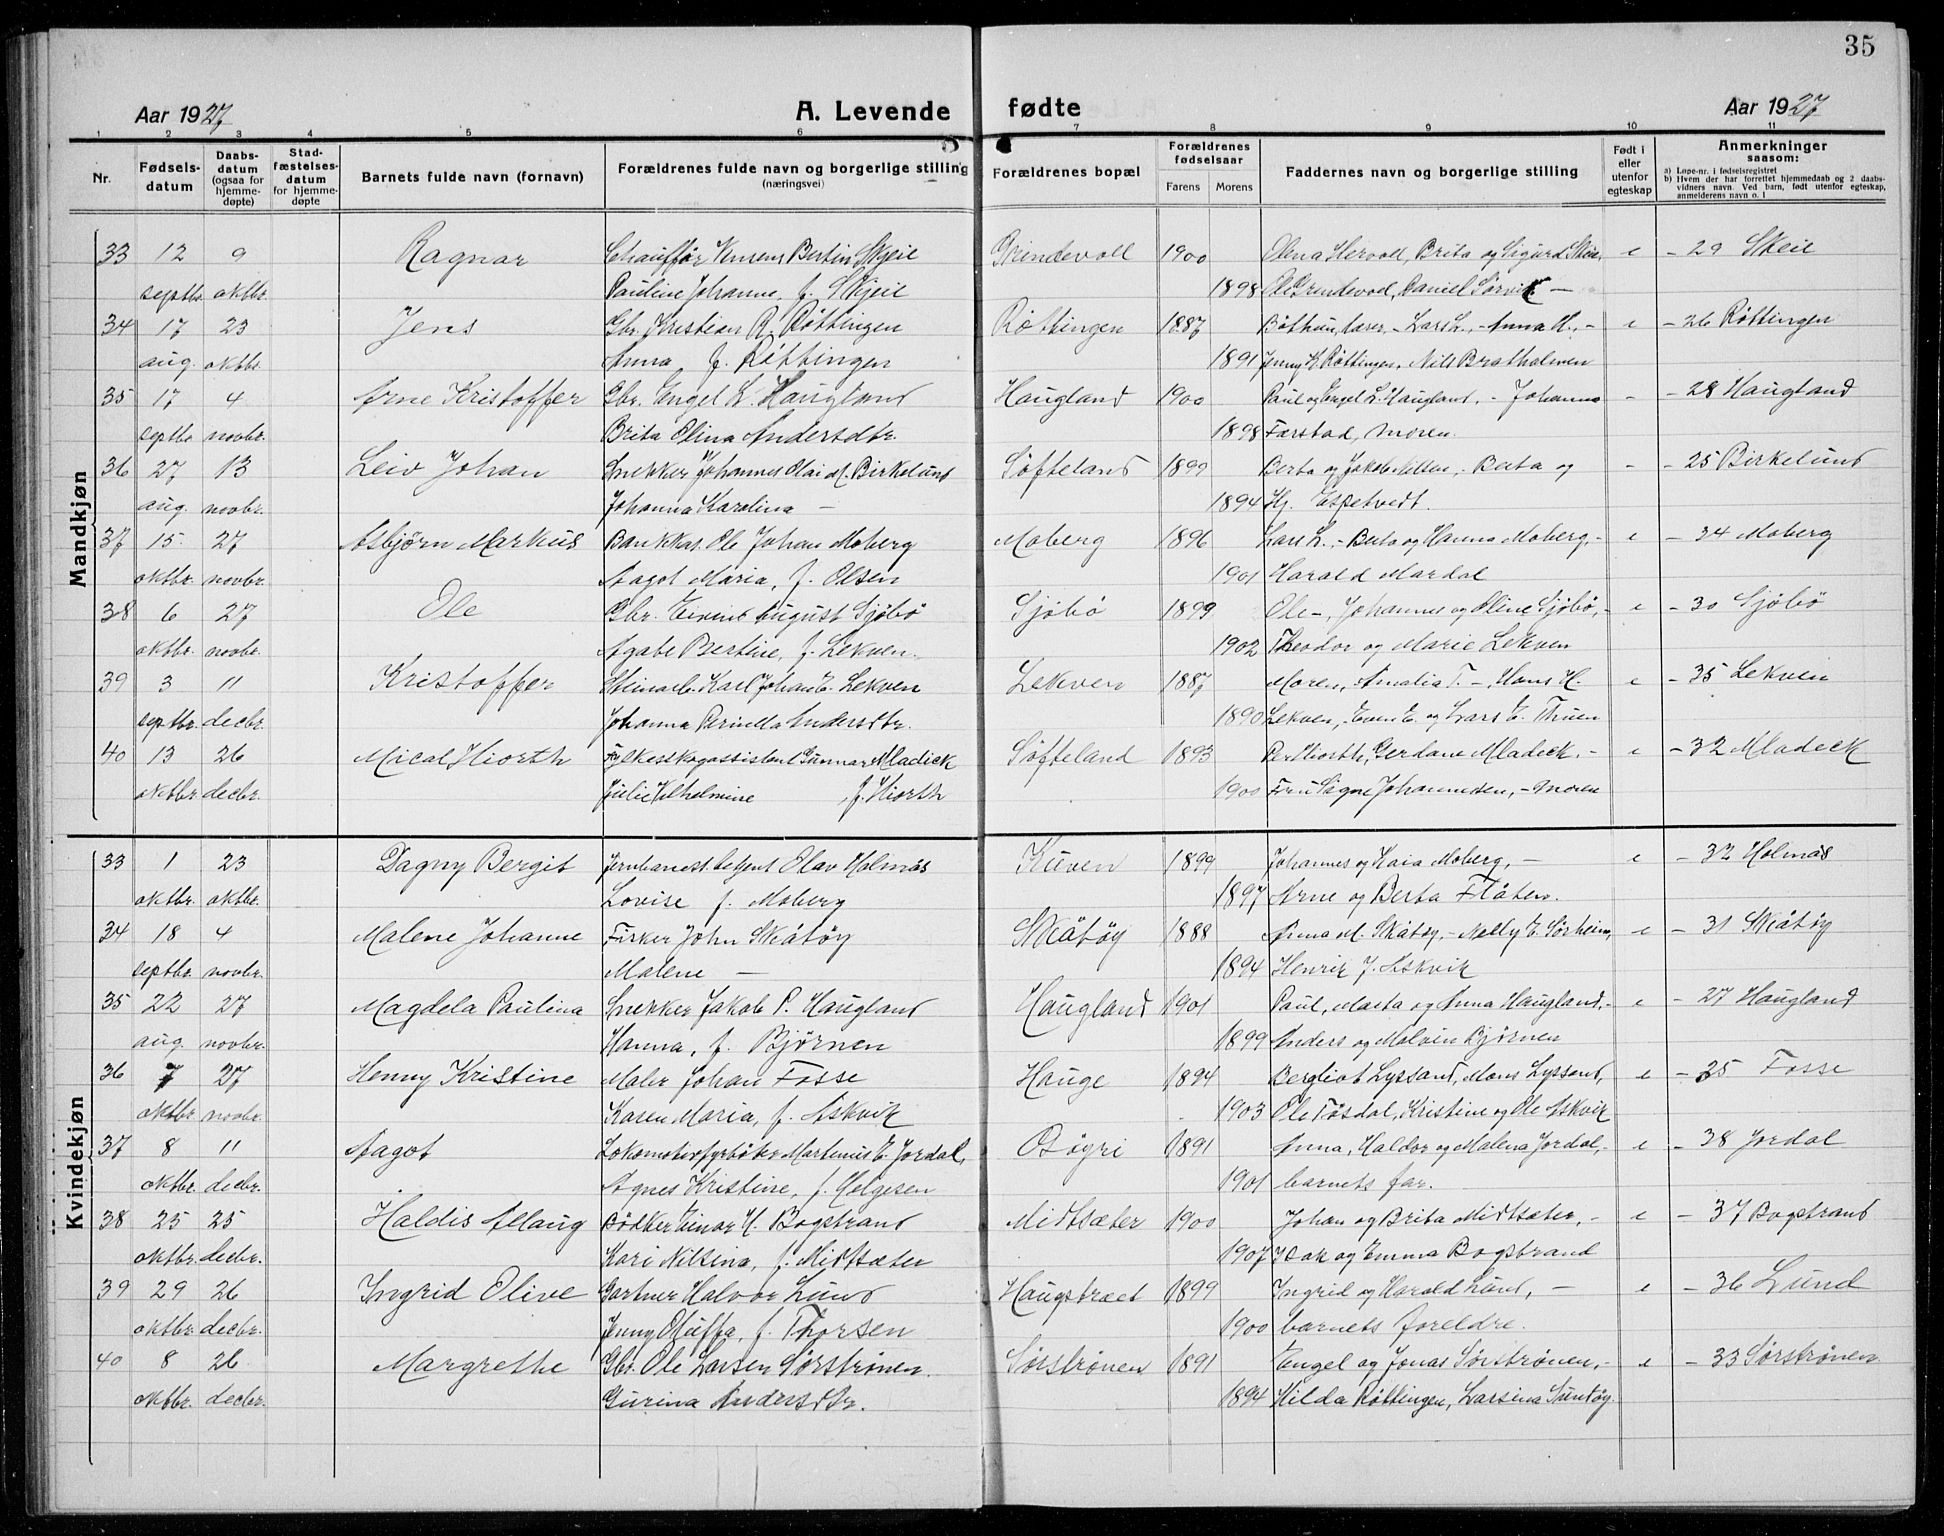 35
Aar 1927 A. Levende fødte Aar 1927
1 2 3 4 5 6 7 8 9 10 11
Nr. Fødsels-datum Daabs-datum (ogsaa for hjemme-døpte) Stad-fæstelses-datum for hjemme-døpte Barnets fulde navn (fornavn) Forældrenes fulde navn og borgerlige stilling (næringsvei) Forældrenes bopæl Forældrenes fødselsaar Farens Morens Faddernes navn og borgerlige stilling Født i eller utenfor egteskap Anmerkninger saasom: a) Løpe-nr. i fødselsregistret b) Hvem der har forrettet hjemmedaab og 2 daabs-vidners navn. Ved barn, født utenfor egteskap, anmelderens navn o. l
Mandkjøn
33 12 9 Ragnar Chauffør Bertin Skjeie Grindevoll 1900 Olena Hervol, Brita og Sigurd Skeie, e - 29 Skeie
septbr. oktbr. Pauline Johanne, f. Skjeie 1898 Ole Grindevod, Daniel Sørvik -
34 17 23 Jens Gbr. Kristian R. Røttingen Røttingen 1887 Lars L., - Anna K., - e - 26 Røttingen
aug. oktbr. Anna f. Røttingen 1891 Jenny K. Røttingen, Nils Brathalmen
35 17 4 Arne Kristoffer Gbr. Engel L. Haugland Haugland 1900 Paul og Engel L. Haugland, - Johanna - - 28 Haugland
septbr. novbr. Brita Olina Andersdtr. 1898 Færstad, moren.
36 27 13 Leiv Johan Snekker Johannes Olai M. Birkelund Søfteland 1899 Berta og Jakob Nilsen, Berta og - - 25 Birkelund
aug. novbr. Johanna Karolina - 1894 Hj. Espetvedt.
37 15 27 Asbjørn Markus Bankkas. Ole Johan Moberg Moberg 1896 Lars L., - Berta og Hanna Moberg, - e - 34 Moberg
oktbr. novbr. Aagot Maria, f. Olsen 1901 Harald Mardal
38 6 27 Ole Gbr. Eivind August Sjøbø Sjøbø 1899 Ole -, Johannes og Oline Sjøbø, - e - 30 Sjøbø
oktbr. novbr. Agate Bertine, f. Lekven. 1902 Theodor og Marie Lekven
39 3 11 Kristoffer Stenarb. Karl Johan E. Lekven Lekven 1887 Moren, Amalia T. -, Hans H. e - 35 Lekven
septbr. decbr. Johanna Pernella Andersdtr. 1890 Lekven, Even E. og Lars E. Thuen
40 13 26 Mical Hiorth Fylkesskogassistent Gunnar Mladeck Søfteland 1893 Per Hiorth, Gerdane Mladeck, - - 32 Mladeck
oktbr. decbr. Julie Vilhelmine f. Hiorth 1900 Fru Signe Johannesen, - moren
Kvindekjøn
33 1 23 Dagny Bergit Jernbanest. betjent Olav Holmås Kuven 1899 Johannes og Kaia Moberg, - e - 32 Holmås
oktbr. oktbr. Lovise f. Moberg 1897 Arne og Berta Flåten.
34 18 4 Malene Johanne Fisker John Skåtøy Skåtøy 1888 Anna M. Skåtøy, - Nelly E. Sørheim, e - 31 Skåtøy
septbr. novbr. Malene - 1894 Henrik J. Askvik
35 22 27 Magdela Paulina Snekker Jakob P. Haugland Haugland 1901 Paul, Marta og Anna Haugland, - e - 27 Haugland
aug. novbr. Hanna, f. Bjørnen 1899 Anders og Malvin Bjørnen
36 7 27 Henny Kristine Maler Johan Fosse Hauge 1894 Bergliot Lyssand, Mons Lyssand, e - 25 Fosse
oktbr. novbr. Karen Maria, f. Askvik 1903 Ole Tøsdal, Kristine og Ole Askvik
37 8 11 Aagot Lokomotivfyrbøter Martinus E. Jordal, Osøyri 1891 Anna, Haldor og Malena Jordal, - e - 38 Jordal
oktbr. decbr. Agnes Kristine, f. Helgesen 1901 barnets far.
38 25 25 Haldis Allaug Bødker Einar H. Bogstrand Midtsæter 1900 Johan og Brita Midtsæter, - e - 37 Bogstrand
oktbr. decbr. Kari Nilsina, f. Midtsæter 1907 Isak og Emma Bogstrand
39 29 26 Ingrid Olive Gartner Halvor Lund Haugstræet 1899 Ingrid og Harald Lund, - e - 36 Lund
oktbr. decbr. Jenny Oluffa, f. Thorsen 1900 barnets foreldre.
40 8 26 Margrethe Gbr. Ole Larsen Sørstrønen Sørstrønen 1891 Engel og Jonas Sørstrønen, - e - 33 Sørstrønen
oktbr. decbr. Gurina Andersdtr. 1894 Hilda Røttingen, Larsina Sundøy.